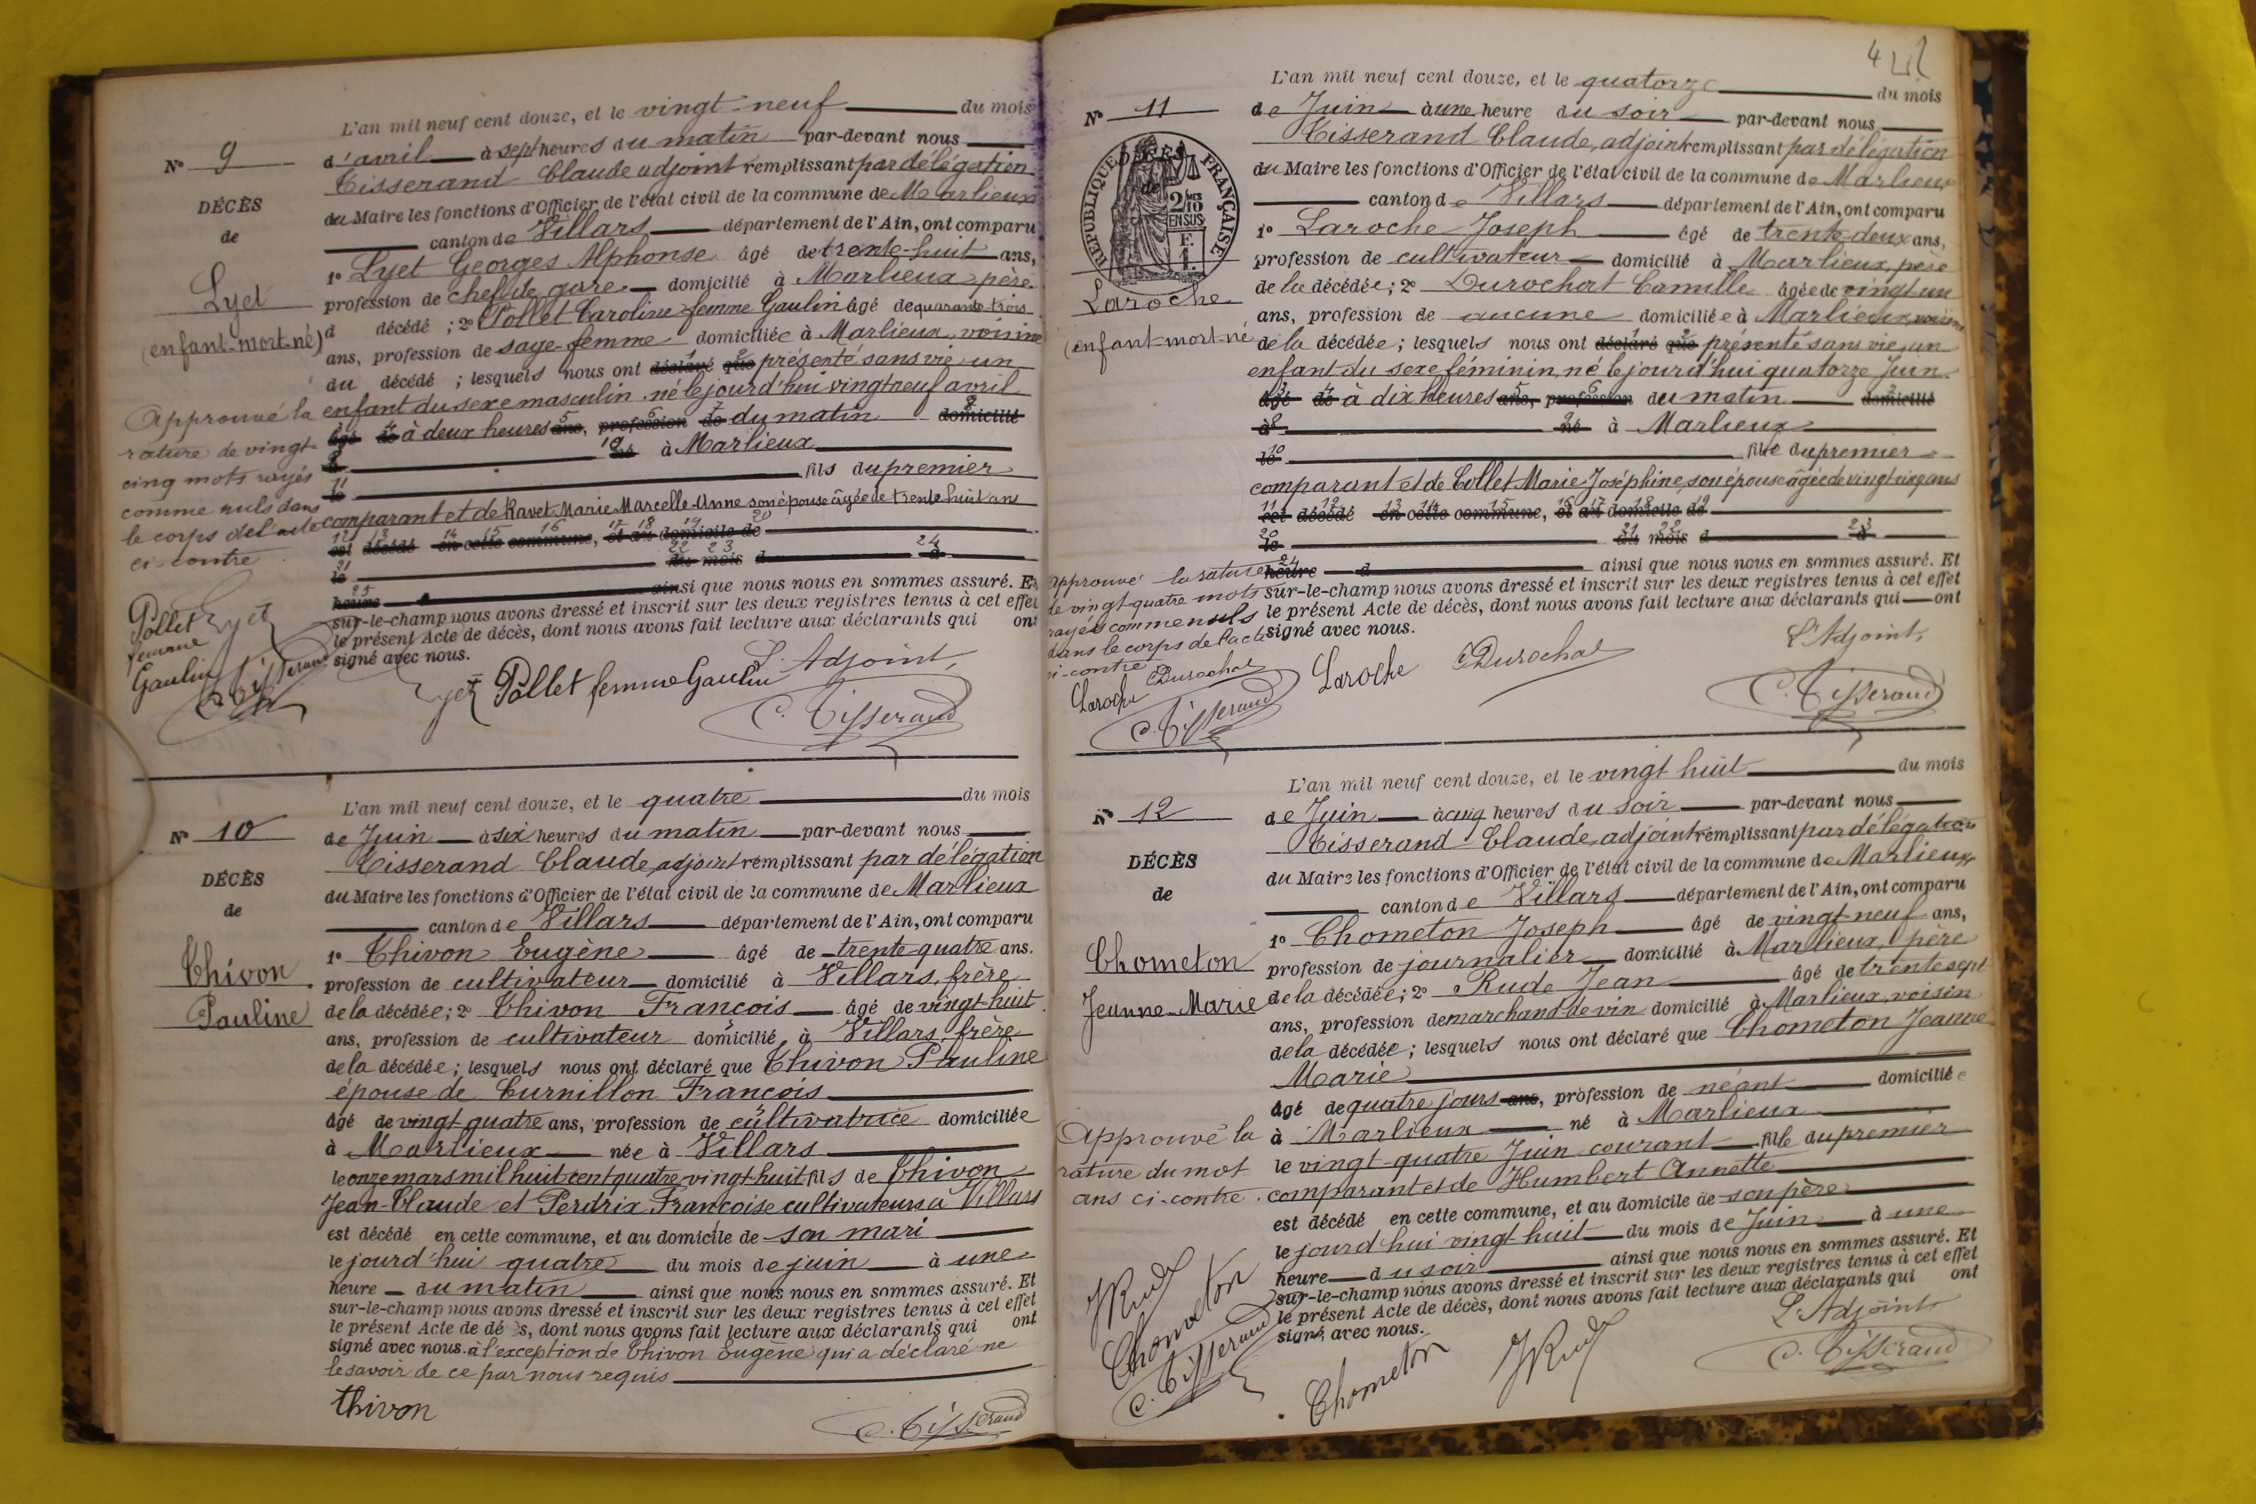 L'an mil neuf cent douze, et le vingt-neuf du mois
N° 9
d'avril à sept heures du matin par-devant nous
Tisserand Claude adjoint remplissant par délégation
DÉCÈS
du Maire les fonctions d'Officier de l'état civil de la commune de Marlieux
de
canton de Villars département de l'Ain, ont comparu
1° Lyet Georges Alphonse âgé de trente-huit ans,
Lyet
profession de chef de gare domicilié à Marlieux père
(enfant-mort-né)
d décédé ; 2° Pollet Caroline femme Gaulin âgé de quarante-trois
ans, profession de sage-femme domiciliée à Marlieux, voisine
du décédé ; lesquels nous ont déclaré que présenté sans vie un
enfant du sexe masculin né le jourd'hui vingt neuf avril
âgé de à deux heures ans, profession de du matin domicilié
à né à Marlieux
le fils du premier
comparant et de Ravet Marie Marcelle-Anne son épouse âgée de trente huit ans
est décédé en cette commune, et au domicile de
le du mois d à
heure d ainsi que nous nous en sommes assuré. Et
sur-le-champ nous avons dressé et inscrit sur les deux registres tenus à cet effet
le présent Acte de décès, dont nous avons fait lecture aux déclarants qui ont
signé avec nous.
Approuvé la
rature de vingt-
cinq mots rayés
comme nuls dans
le corps de l'acte
ci-contre
Pollet Lyet
femme
Gaulin C. Tisserand
L'Adjoint,
Lyet Pollet femme Gaulin
C. Tisserand
L'an mil neuf cent douze, et le quatre du mois
N° 10
de Juin à six heures du matin par-devant nous
Tisserand Claude, adjoint remplissant par délégation
DÉCÈS
du Maire les fonctions d'Officier de l'état civil de la commune de Marlieux
de
canton de Villars département de l'Ain, ont comparu
1° Thivon Eugène âgé de trente-quatre ans.
Thivon
profession de cultivateur domicilié à Villars, frère
Pauline
de la décédée ; 2° Thivon François âgé de vingt-huit
ans, profession de cultivateur domicilié à Villars, frère
de la décédée ; lesquels nous ont déclaré que Thivon Pauline
épouse de Curnillon François
âgé de vingt quatre ans, profession de cultivatrice domiciliée
à Marlieux née à Villars
le onze mars mil huit cent quatre vingt-huit fils de Thivon
Jean-Claude et Perdrix Françoise cultivateurs à Villars
est décédé en cette commune, et au domicile de son mari
le jourd'hui quatre du mois de juin à une
heure du matin ainsi que nous nous en sommes assuré. Et
sur-le-champ nous avons dressé et inscrit sur les deux registres tenus à cet effet
le présent Acte de décès, dont nous avons fait lecture aux déclarants qui ont
signé avec nous. à l'exception de Thivon Eugène qui a déclaré ne
le savoir de ce par nous requis
thivon
C. Tisserand
4
L'an mil neuf cent douze, et le quatorze du mois
N° 11
de Juin à une heure du soir par-devant nous
Tisserand Claude, adjoint remplissant par délégation
RÉPUBLIQUE FRANÇAISE
DÉCÈS
de
2/10 EN SUS
du Maire les fonctions d'Officier de l'état civil de la commune de Marlieux
canton de Villars département de l'Ain, ont comparu
1° Laroche Joseph âgé de trente-deux ans,
profession de cultivateur domicilié à Marlieux, père
Laroche
de la décédée ; 2° Durochat Camille âgée de vingt un
(enfant-mort-né
ans, profession de aucune domiciliée à Marlieux voisine
de la décédée ; lesquels nous ont déclaré que présenté sans vie, un
enfant du sexe féminin, né le jourd'hui quatorze Juin
âgé de à dix heures ans, profession du matin domicilié
à né à Marlieux
le fille du premier
comparant et de Collet Marie Joséphine, son épouse âgée de vingt cinq ans
est décédé en cette commune, et au domicile de
le du mois d à
heure d ainsi que nous nous en sommes assuré. Et
sur-le-champ nous avons dressé et inscrit sur les deux registres tenus à cet effet
le présent Acte de décès, dont nous avons fait lecture aux déclarants qui ont
signé avec nous.
approuvé la rature
de vingt-quatre mots
rayés comme nuls
dans le corps de l'acte
ci-contre
Laroche Durochat
C. Tisserand
Laroche CDurochat
L'Adjoint,
C. Tisserand
L'an mil neuf cent douze, et le vingt huit du mois
N° 12
de Juin à cinq heures du soir par-devant nous
Tisserand Claude, adjoint remplissant par délégation
DÉCÈS
du Maire les fonctions d'Officier de l'état civil de la commune de Marlieux
de
canton de Villars département de l'Ain, ont comparu
1° Chometon Joseph âgé de vingt-neuf ans,
Chometon
profession de journalier domicilié à Marlieux, père
Jeanne-Marie
de la décédée ; 2° Rude Jean âgé de trente sept
ans, profession de marchand de vin domicilié à Marlieux, voisin
de la décédée ; lesquels nous ont déclaré que Chometon Jeanne
Marie
âgé de quatre jours ans, profession de néant domiciliée
à Marlieux né à Marlieux
le vingt-quatre Juin courant fille du premier
comparant et de Humbert Annette
est décédé en cette commune, et au domicile de son père
le jourd'hui vingt huit du mois de Juin à une
heure du soir ainsi que nous nous en sommes assuré. Et
sur-le-champ nous avons dressé et inscrit sur les deux registres tenus à cet effet
le présent Acte de décès, dont nous avons fait lecture aux déclarants qui ont
signé avec nous.
Approuvé la
rature du mot
ans ci-contre.
JRude
Chometon
C. Tisserand
Chometon JRude
L'Adjoint
C. Tisserand